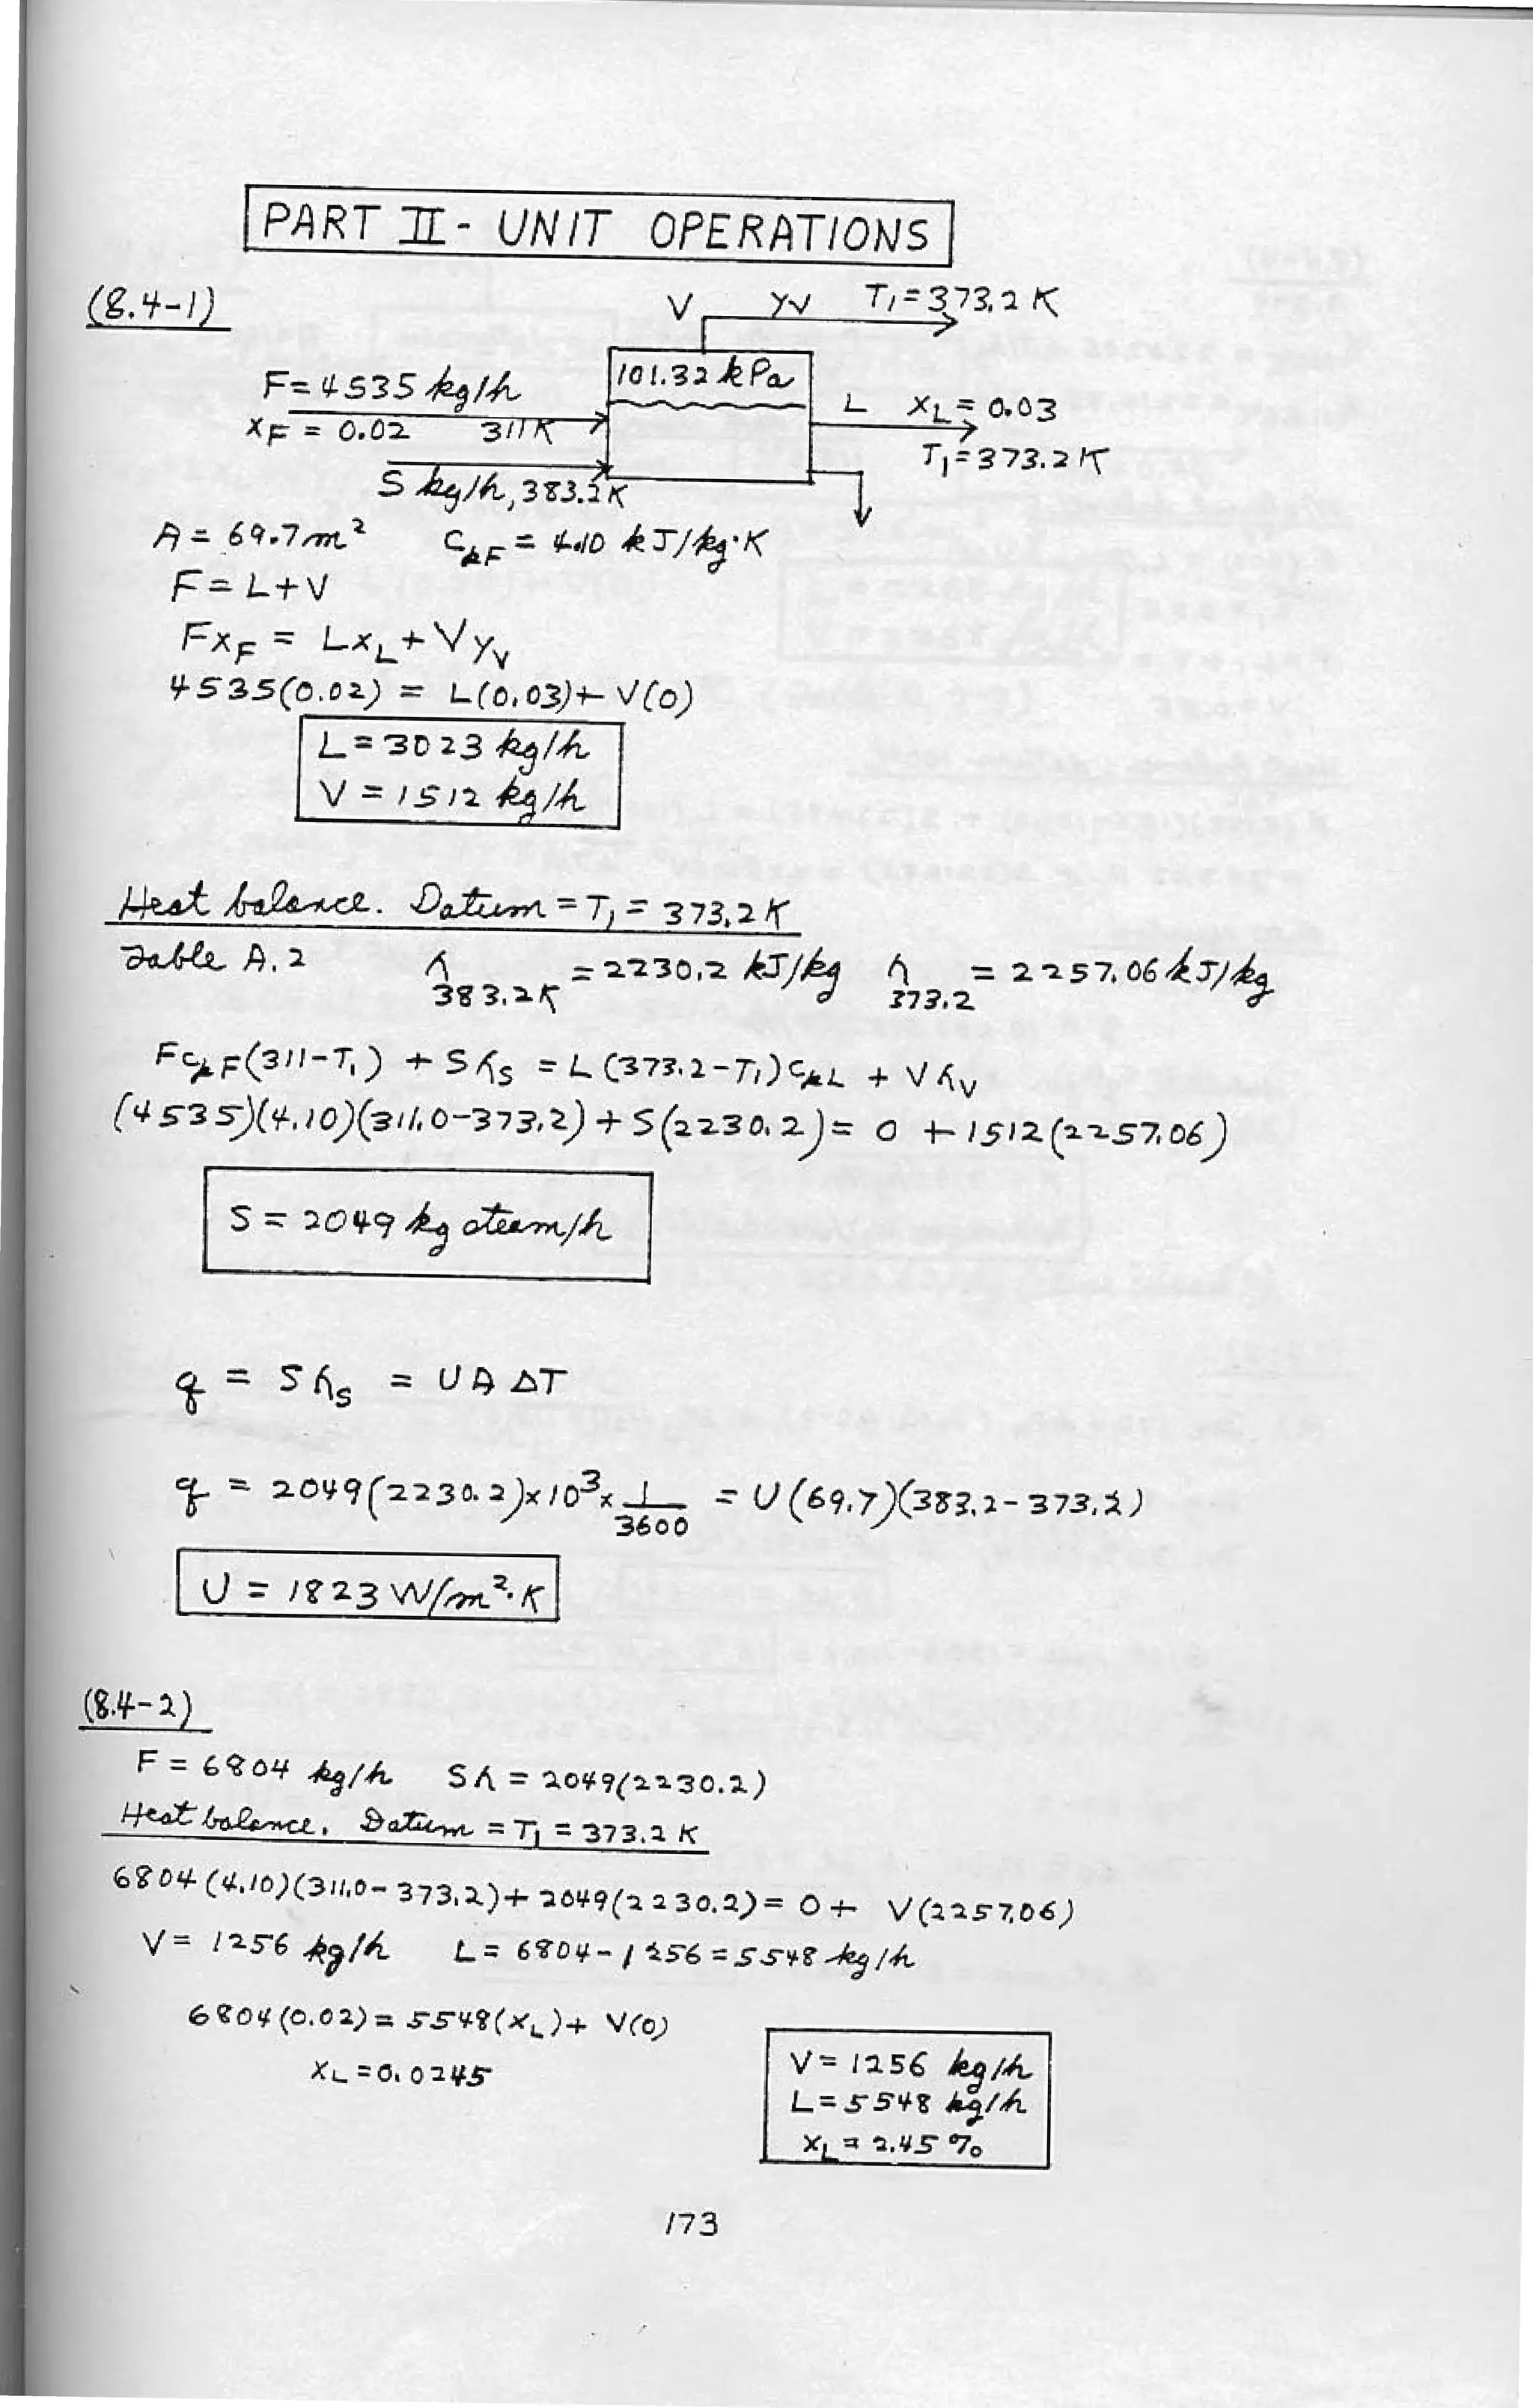 PART II - UNIT OPERATIONS
(8.4-1)
V yV T₁=373.2 K
101.32 kPa
F=4535 kg/h
xF = 0.02 311 K
L xL = 0.03
T₁=373.2 K
S kg/h, 383.2 K
A = 69.7 m² cpF = 4.10 kJ/kg·K
F = L+V
FxF = LxL + VyV
4535(0.02) = L(0.03)+ V(0)
L = 3023 kg/h
V = 1512 kg/h
Heat balance. Datum = T₁ = 373.2 K
Table A.2 λ383.2K = 2230.2 kJ/kg λ373.2 = 2257.06 kJ/kg
FcpF(311-T₁) + SλS = L(373.2-T₁)cpL + VλV
(4535)(4.10)(311.0-373.2) + S(2230.2) = 0 + 1512(2257.06)
S = 2049 kg steam/h
q = SλS = UAΔT
q = 2049(2230.2)x10³x 1/3600 = U(69.7)(383.2-373.2)
U = 1823 W/m²·K
(8.4-2)
F = 6804 kg/h Sλ = 2049(2230.2)
Heat balance. Datum = T₁ = 373.2 K
6804(4.10)(311.0-373.2)+ 2049(2230.2) = 0 + V(2257.06)
V = 1256 kg/h L = 6804-1256 = 5548 kg/h
6804(0.02) = 5548(xL)+ V(0)
xL = 0.0245
V = 1256 kg/h
L = 5548 kg/h
xL = 2.45 %
173